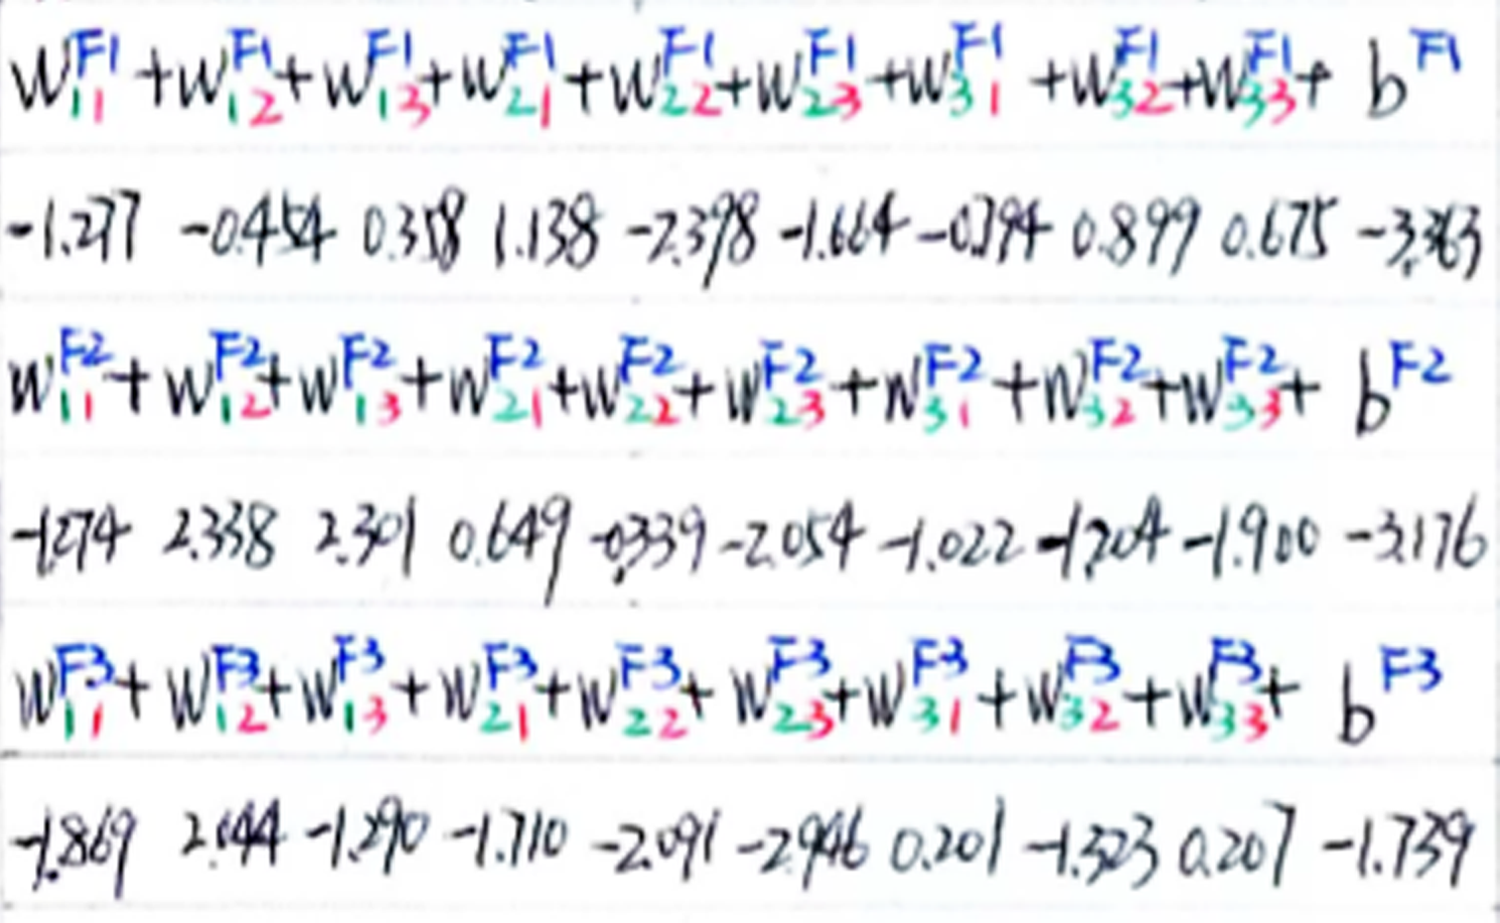 w₁₁^F1 + w₁₂^F1 + w₁₃^F1 + w₂₁^F1 + w₂₂^F1 + w₂₃^F1 + w₃₁^F1 + w₃₂^F1 + w₃₃^F1 + b^F1
-1.277 -0.454 0.358 1.138 -2.398 -1.664 -0.794 0.899 0.675 -3.363
w₁₁^F2 + w₁₂^F2 + w₁₃^F2 + w₂₁^F2 + w₂₂^F2 + w₂₃^F2 + w₃₁^F2 + w₃₂^F2 + w₃₃^F2 + b^F2
-1.274 2.338 2.301 0.649 -0.339 -2.054 -1.022 -1.204 -1.900 -3.176
w₁₁^F3 + w₁₂^F3 + w₁₃^F3 + w₂₁^F3 + w₂₂^F3 + w₂₃^F3 + w₃₁^F3 + w₃₂^F3 + w₃₃^F3 + b^F3
-1.869 2.044 -1.290 -1.710 -2.091 -2.946 0.201 -1.323 0.207 -1.739